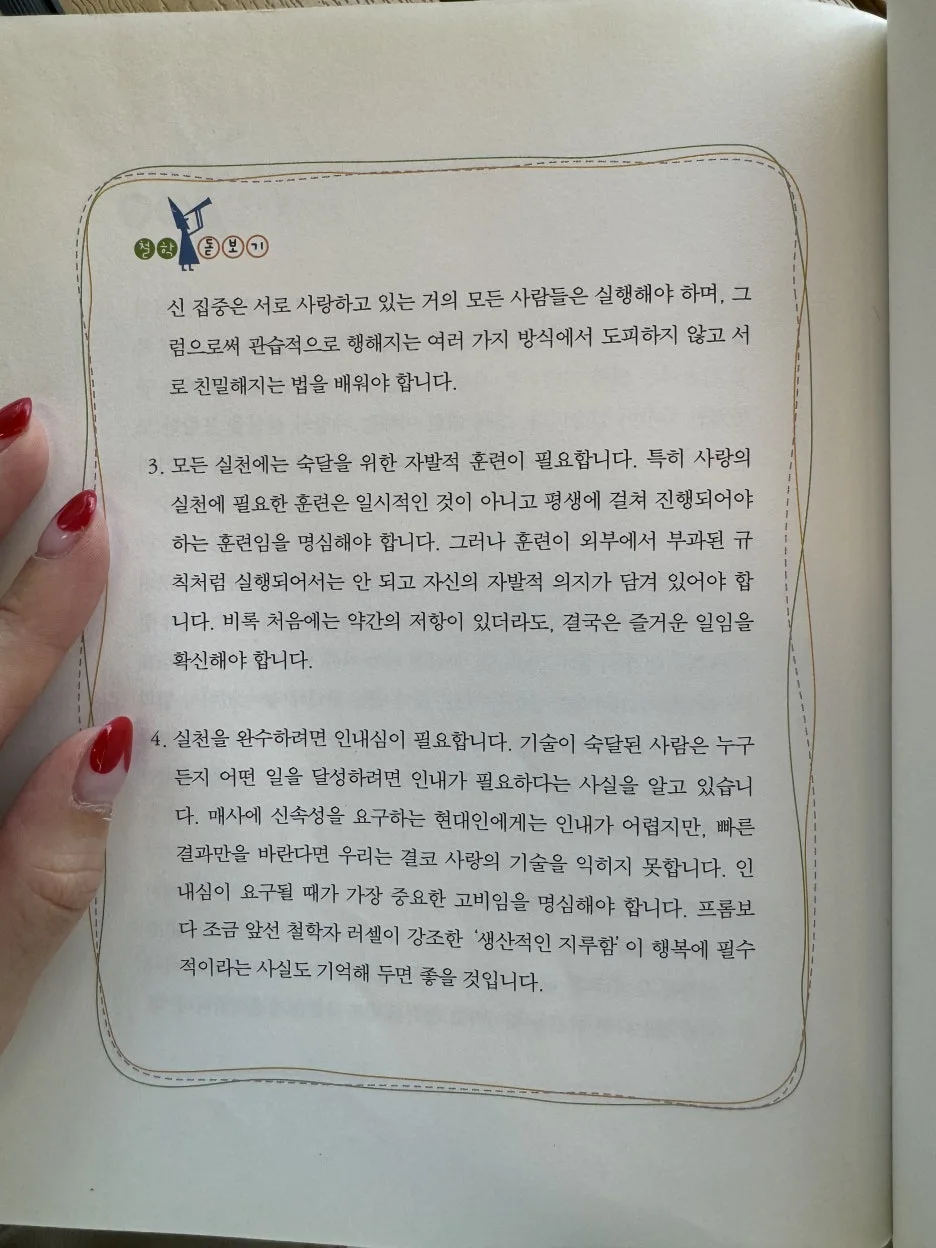 철학 돋보기
신 집중은 서로 사랑하고 있는 거의 모든 사람들은 실행해야 하며, 그
럼으로써 관습적으로 행해지는 여러 가지 방식에서 도피하지 않고 서
로 친밀해지는 법을 배워야 합니다.
3. 모든 실천에는 숙달을 위한 자발적 훈련이 필요합니다. 특히 사랑의
실천에 필요한 훈련은 일시적인 것이 아니고 평생에 걸쳐 진행되어야
하는 훈련임을 명심해야 합니다. 그러나 훈련이 외부에서 부과된 규
칙처럼 실행되어서는 안 되고 자신의 자발적 의지가 담겨 있어야 합
니다. 비록 처음에는 약간의 저항이 있더라도, 결국은 즐거운 일임을
확신해야 합니다.
4. 실천을 완수하려면 인내심이 필요합니다. 기술이 숙달된 사람은 누구
든지 어떤 일을 달성하려면 인내가 필요하다는 사실을 알고 있습니
다. 매사에 신속성을 요구하는 현대인에게는 인내가 어렵지만, 빠른
결과만을 바란다면 우리는 결코 사랑의 기술을 익히지 못합니다. 인
내심이 요구될 때가 가장 중요한 고비임을 명심해야 합니다. 프롬보
다 조금 앞선 철학자 러셀이 강조한 ‘생산적인 지루함’이 행복에 필수
적이라는 사실도 기억해 두면 좋을 것입니다.